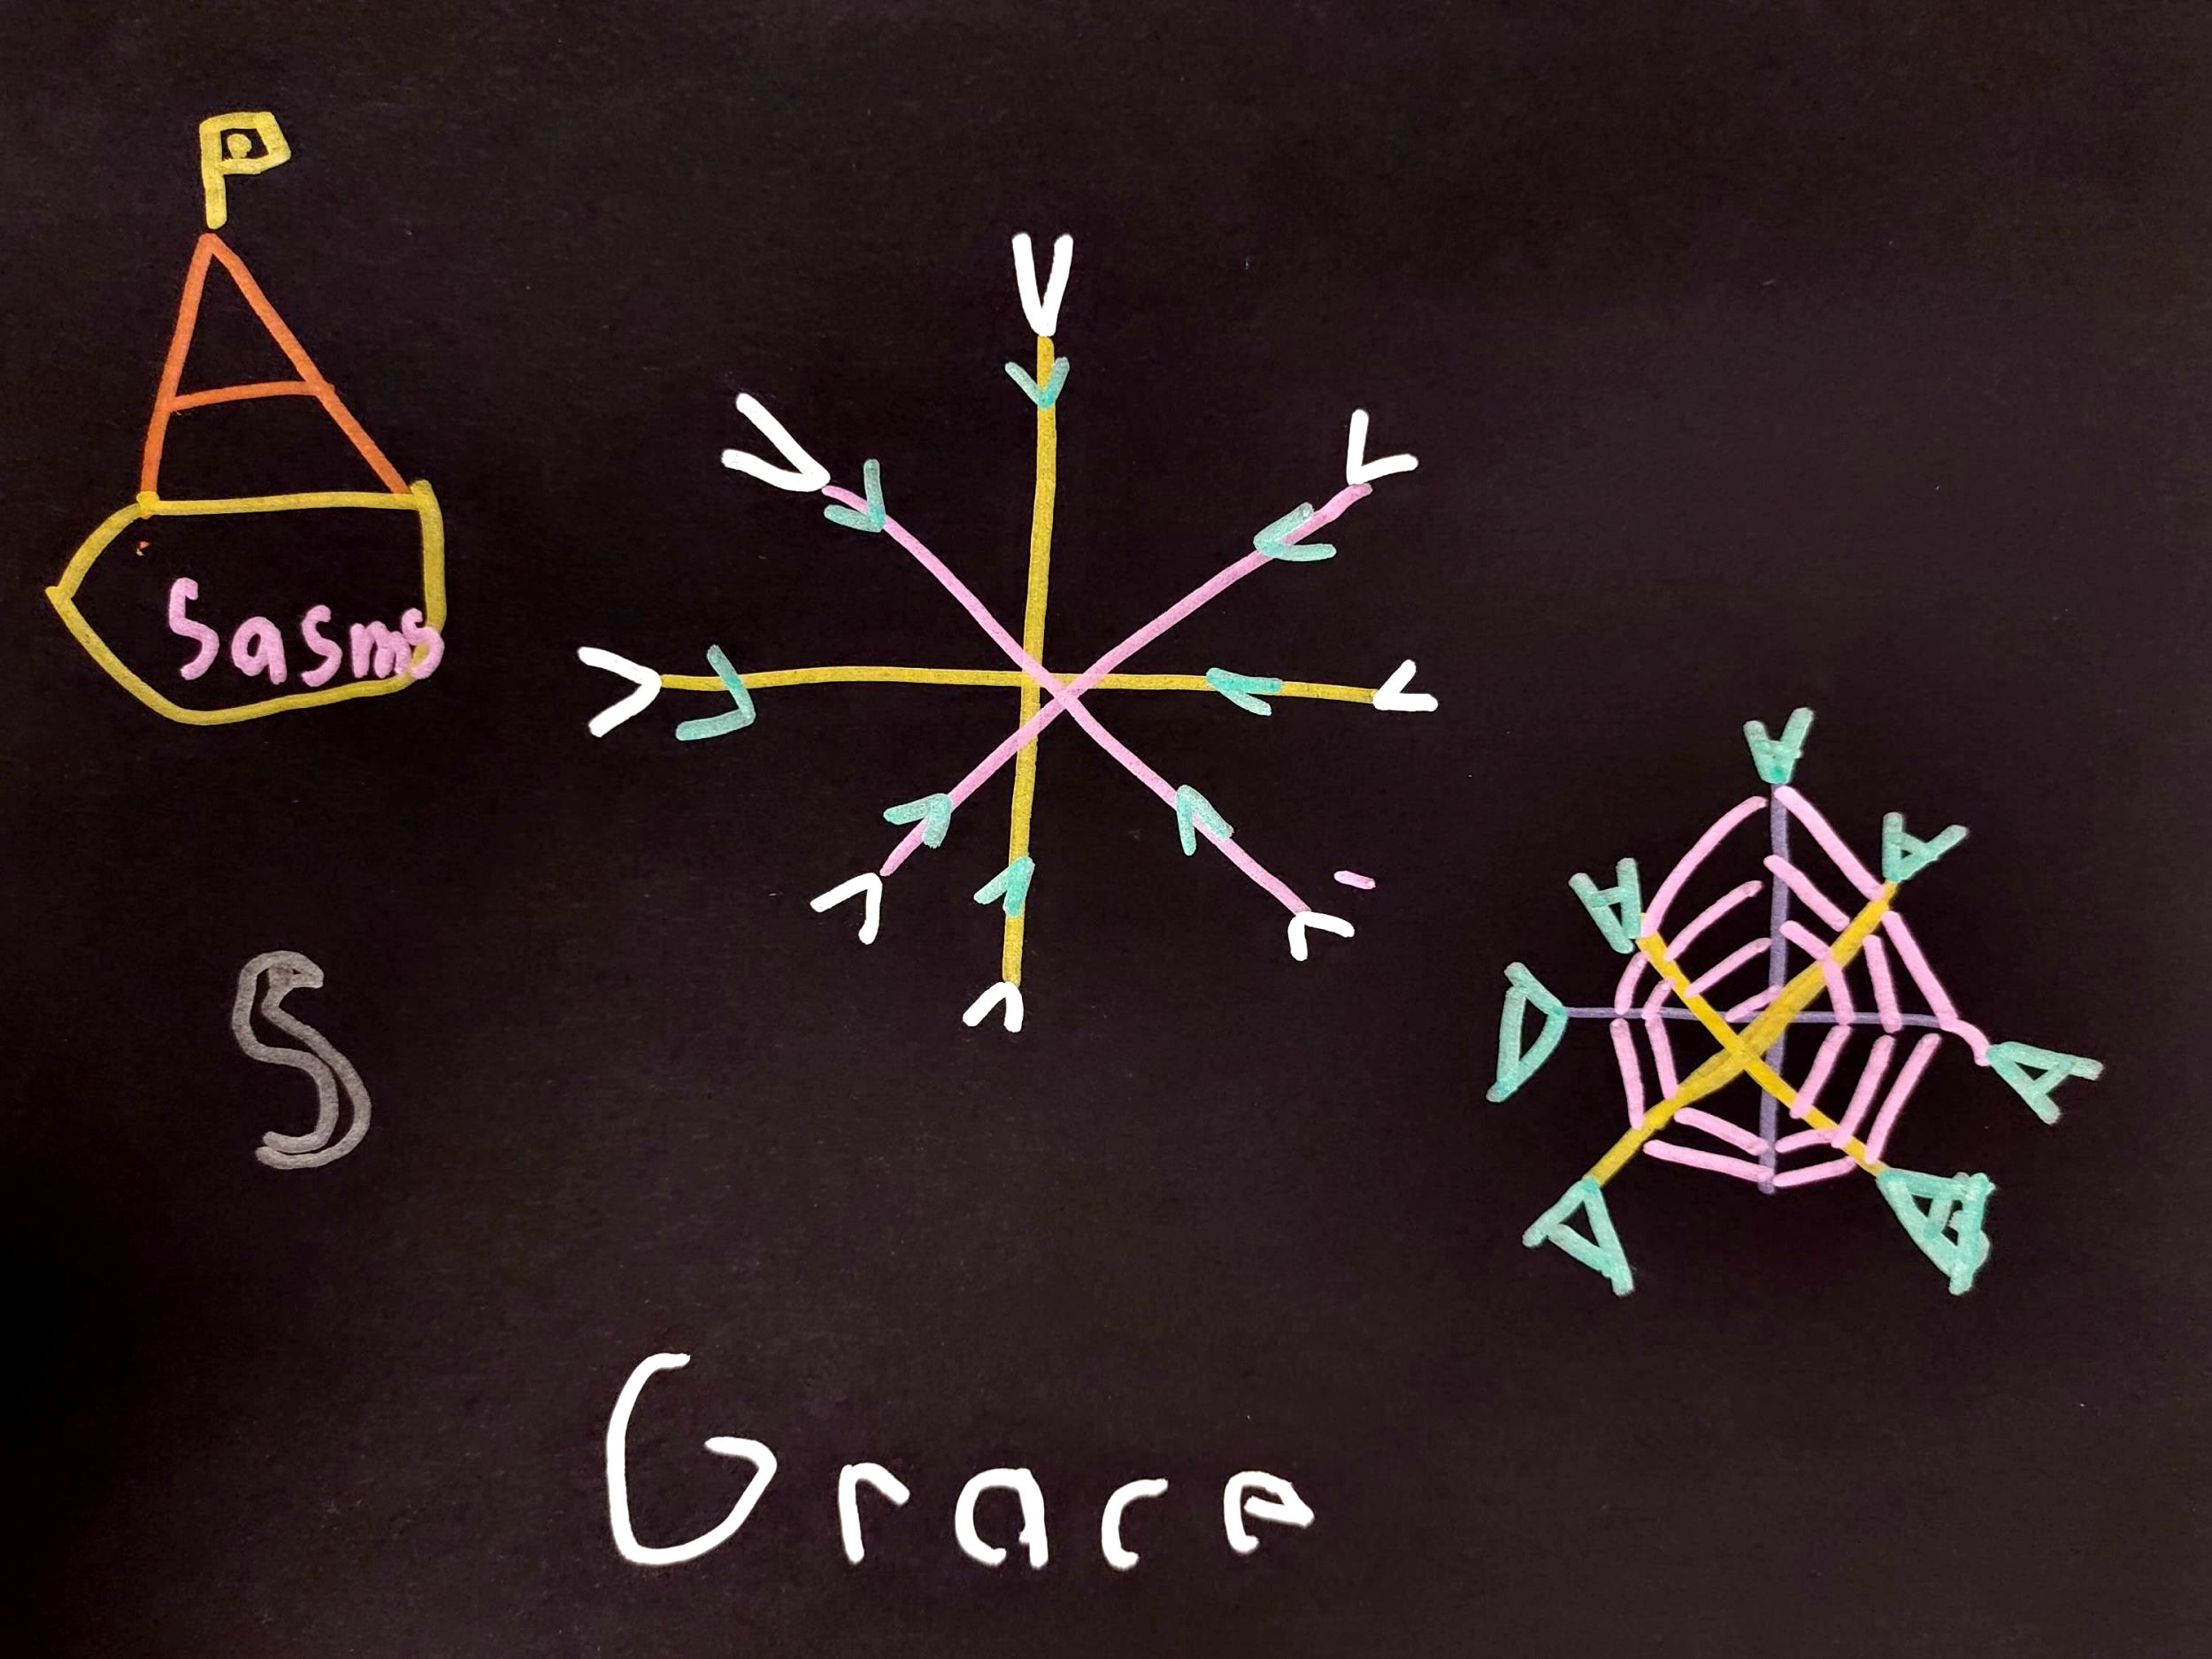 Sasms
S
Grace